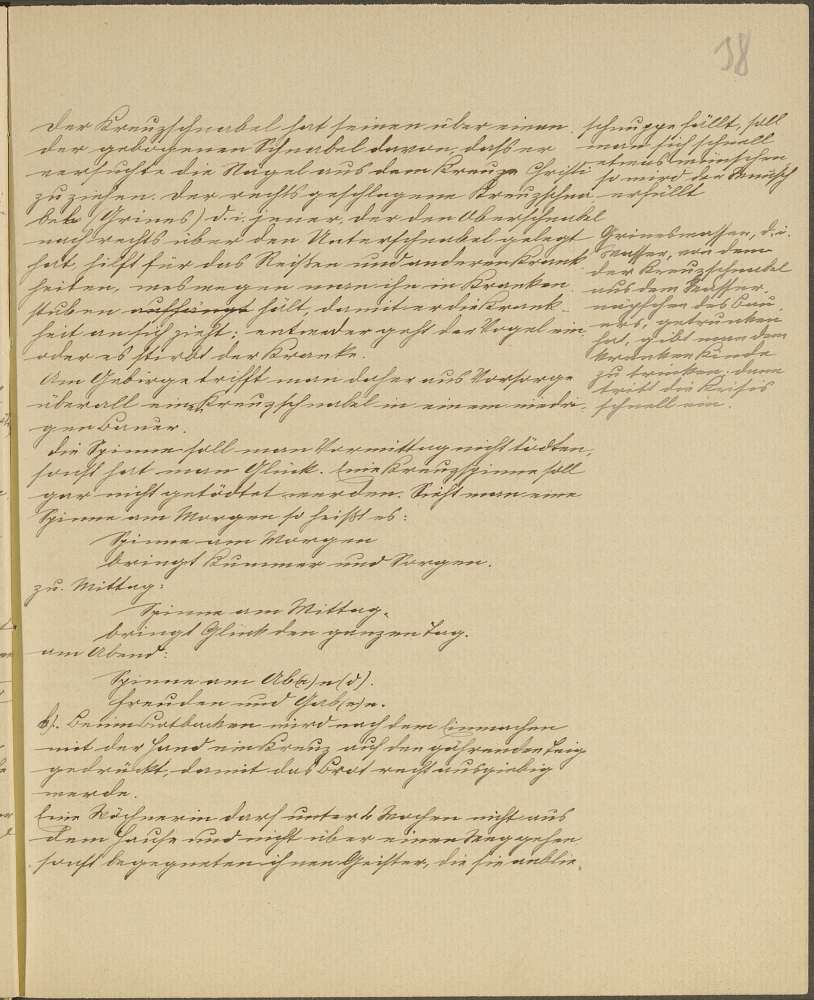 38
Der Kreuzschnabel hat seinen über einan-
der gebogenen Schnabel davon, dass er
versuchte die Nagel aus dem Kreuze Christi
zu ziehen. Der rechts geschlagene Kreuzschna-
bel (Grines) d. i. jener, der den Oberschnabel
nach rechts über den Unterschnabel gelegt
hat, hilft für das Reißen und anderen Krank-
heiten, weswegen man ihn in Kranken-
stuben aufhängt hält, damit er die Krank-
heit an sich zieht; entweder geht der Vogel ein
oder es stirbt der Kranke.
Am Gebirge trifft man daher aus Vorsorge
überall einen Kreuzschnabel in einem niedri-
gen Bauer.
Die Spinne soll man Vormittag nicht tödten,
sonst hat man Glück. Eine Kreuzspinne soll
gar nicht getödtet werden. Sieht man eine
Spinne am Morgen so heißt es:
Spinne am Morgen
bringt Kummer und Sorgen.
zu Mittag:
Spinne am Mittag,
bringt Glück den ganzen Tag.
am Abend:
Spinne am Ab(e)n(d).
Freuden und Gab(e)n.
b). Beim Brotbacken wird nach dem Einmachen
mit der Hand ein Kreuz auf den gährenden Teig
gedrückt, damit das Brot recht ausgiebig
werde.
Eine Wöchnerin darf unter 6 Wochen nicht aus
dem Hause und nicht über einen Weg gehen
sonst begegneten ihnen Geister, die sie anblie-
schnuppe fällt, soll
man sich schnell
etwas wünschen,
so wird der Wunsch
erfüllt
Grineswasser, d. i.
Wasser, von dem
der Kreuzschnabel
aus dem Wasser-
näpfchen des Bau-
ers, getrunken
hat, gibt man dem
kranken Kinde
zu trinken, dann
tritt die Krisis
schnell ein.